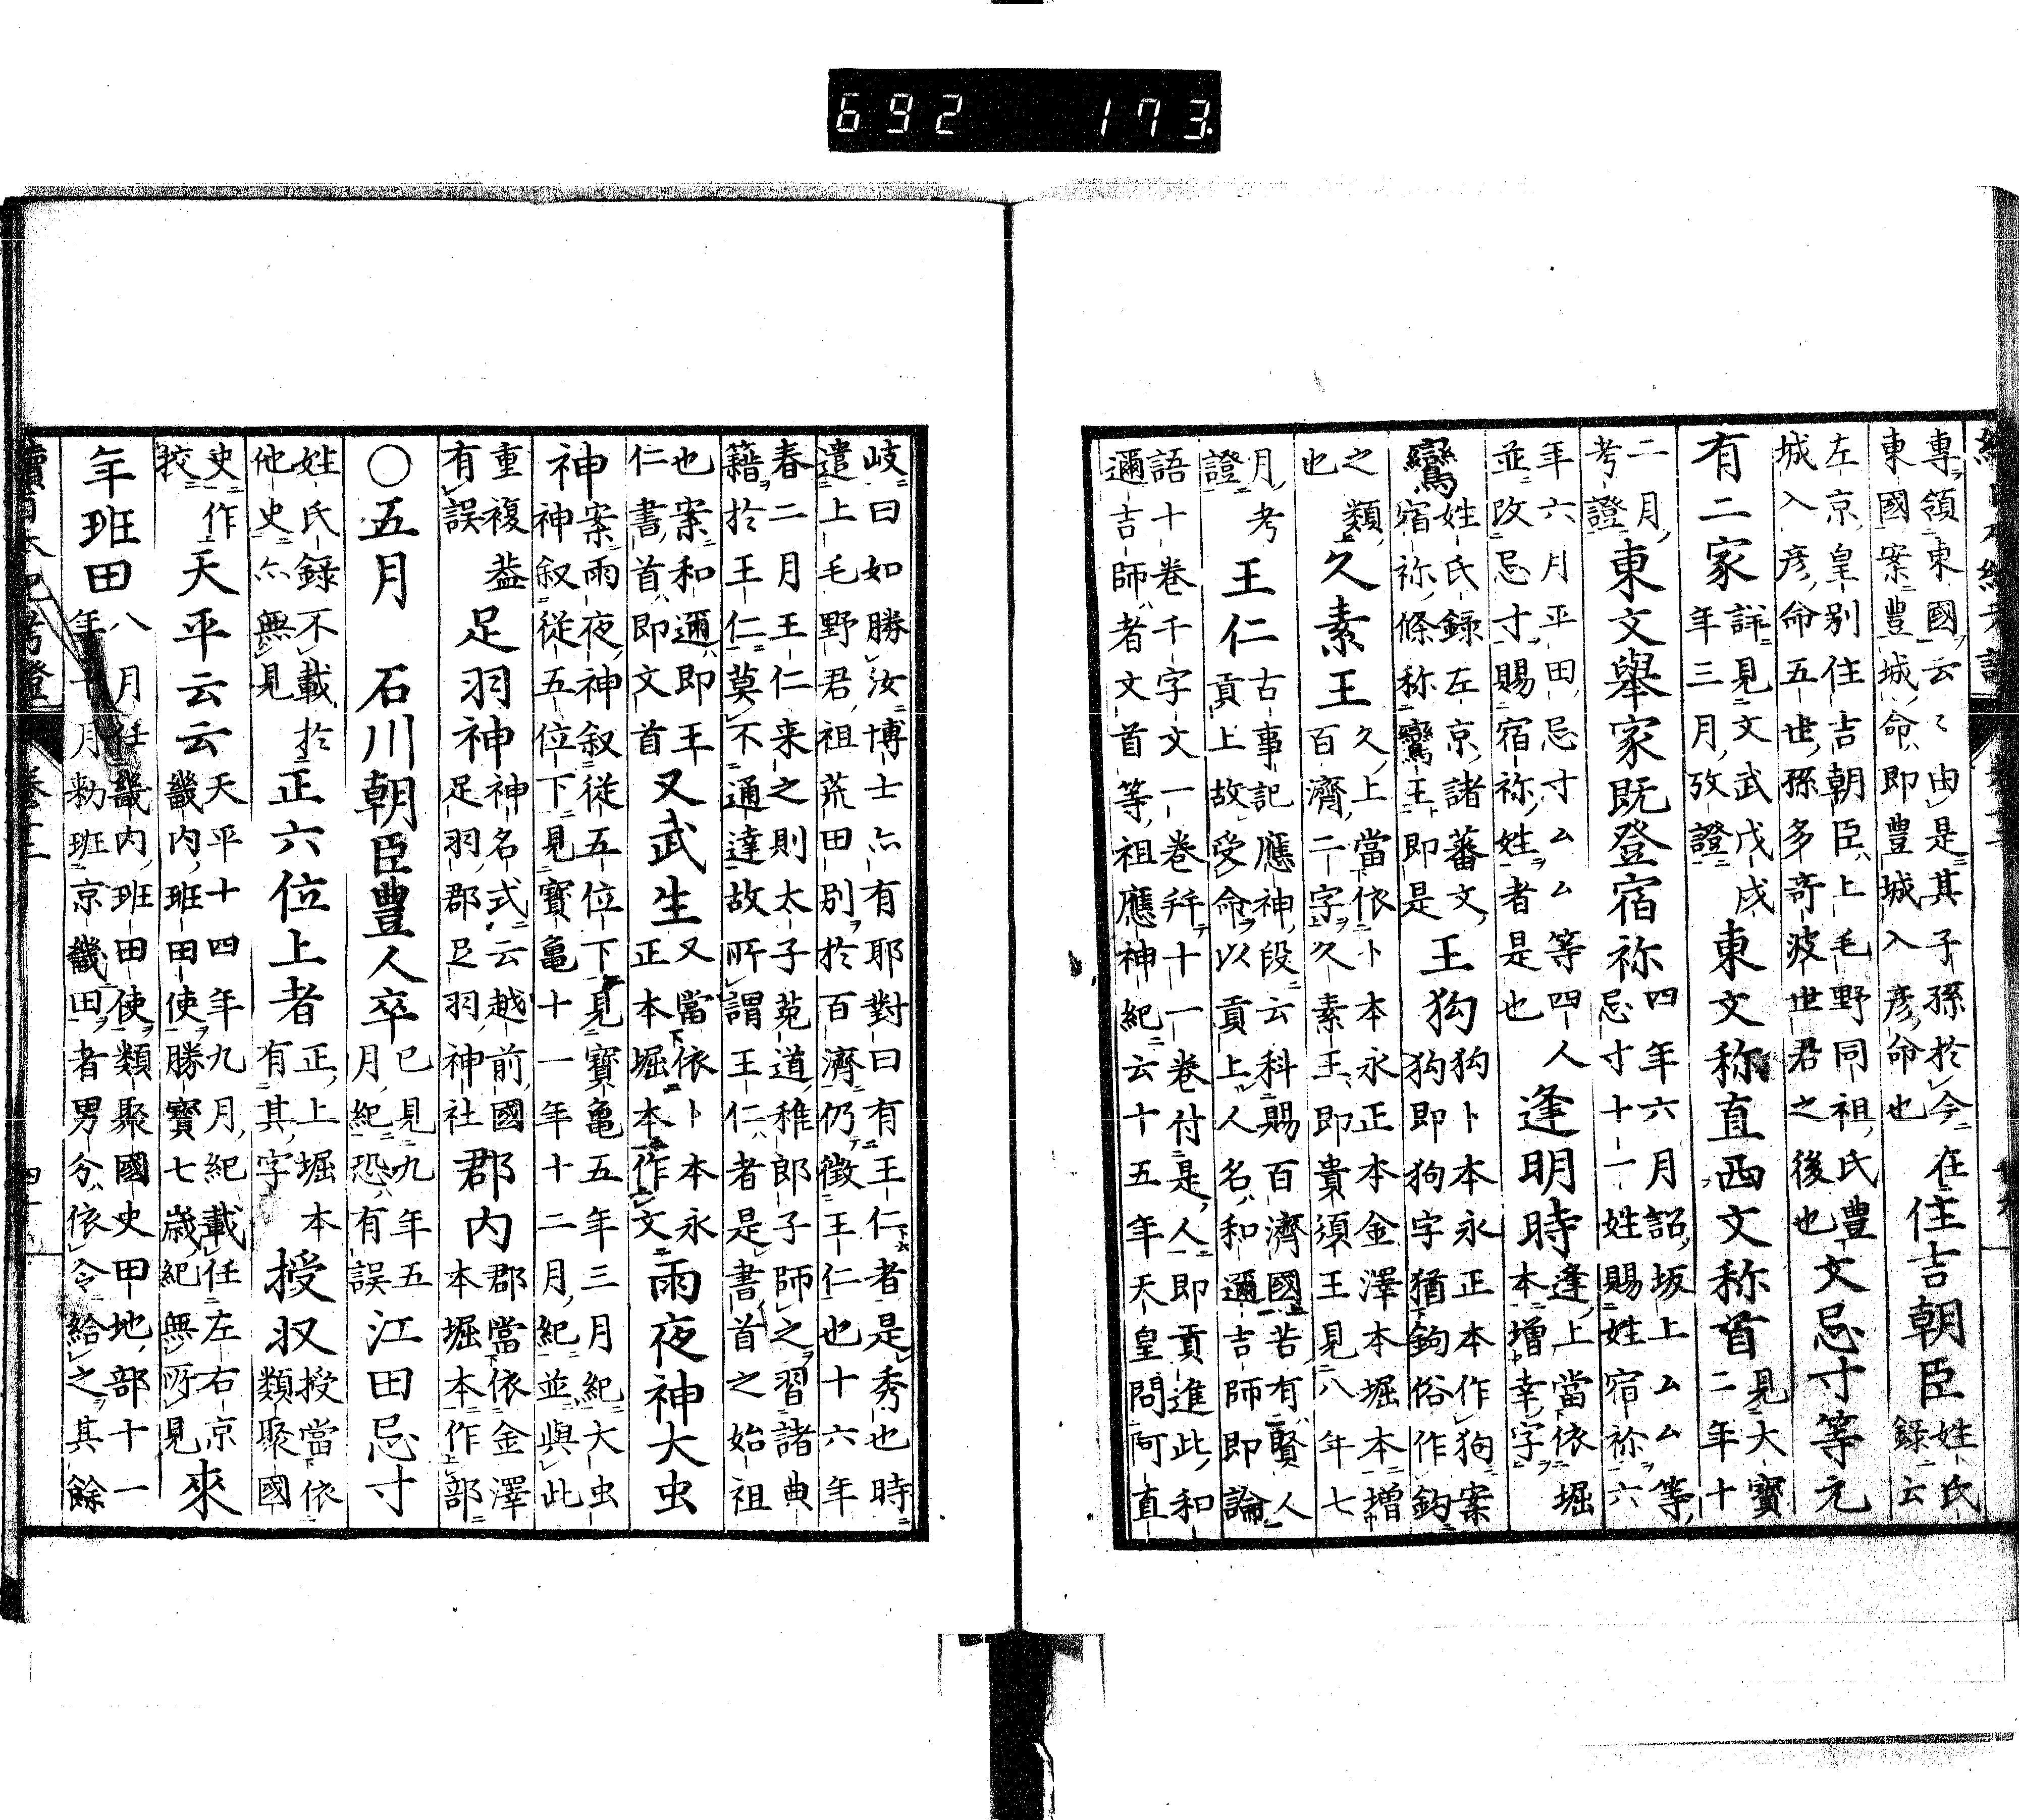 692 173
專領東國云々由是其子孫於今在
東國案豊城命即豊城入彦命也
住吉朝臣
姓氏
錄云
左京皇別住吉朝臣上毛野同祖氏豊
城入彦命五世孫多奇波世君之後也
文忌寸等元
有二家
詳見文武戊戌
年三月攷證
東文称直西文称首
見大寶
二年十
二月
考證
東文舉家既登宿祢
四年六月詔坂上厶厶等
忌寸十一姓賜姓宿祢六
年六月平田忌寸厶厶等四人
並改忌寸賜宿祢姓者是也
逢明時
逢上當依堀
本增幸字
鸞
姓氏録左京諸蕃文
宿祢條称鸞王即是
王狗
狗卜本永正本作狗案
狗即狗字猶鉤俗作鈎
之類
也
久素王
久上當依卜本永正本金澤本堀本增
百濟二字久素王即貴須王見八年七
月考
證
王仁
古事記應神段云科賜百濟國若有賢人
貢上故受命以貢上人名和邇吉師即論
語十卷千字文一卷幷十一卷付是人即貢進此和
邇吉師者文首等祖應神紀云十五年天皇問阿直
岐曰如勝汝博士亦有耶對曰有王仁者是秀也時
遣上毛野君祖荒田別於百濟仍徴王仁也十六年
春二月王仁来之則太子菟道稚郎子師之習諸典
籍於王仁莫不通達故所謂王仁者是書首之始祖
也案和邇即王
仁書首即文首
又武生
又當依卜本永
正本堀本作文
雨夜神大虫
神
案雨夜神叙従五位下見寶亀五年三月紀大虫
神叙従五位下見寶亀十一年十二月紀並與此
重複蓋
有誤
足羽神
神名式云越前國
足羽郡足羽神社
郡内
郡當依金澤
本堀本作部
○五月 石川朝臣豊人卒
已見九年五
月紀恐有誤
江田忌寸
姓氏録不載於
他史亦無見
正六位上者
正上堀本
有其字
授㕝
授當依
類聚國
史作
授
天平云云
天平十四年九月紀載任左右京
畿内班田使勝寶七歳紀無所見
來
年班田
八月任畿内班田使類聚國史甲地部十一
年十月勅班京畿田者男分依令給之其餘
續日本紀考證 卷十二